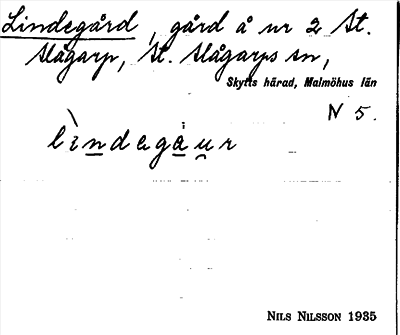 Lindegård, gård å nr 2 St.
Slågarp, St. Slågarps sn,
Skytts härad, Malmöhus län
N 5.
lìndegȧu̯r
NILS NILSSON 1935